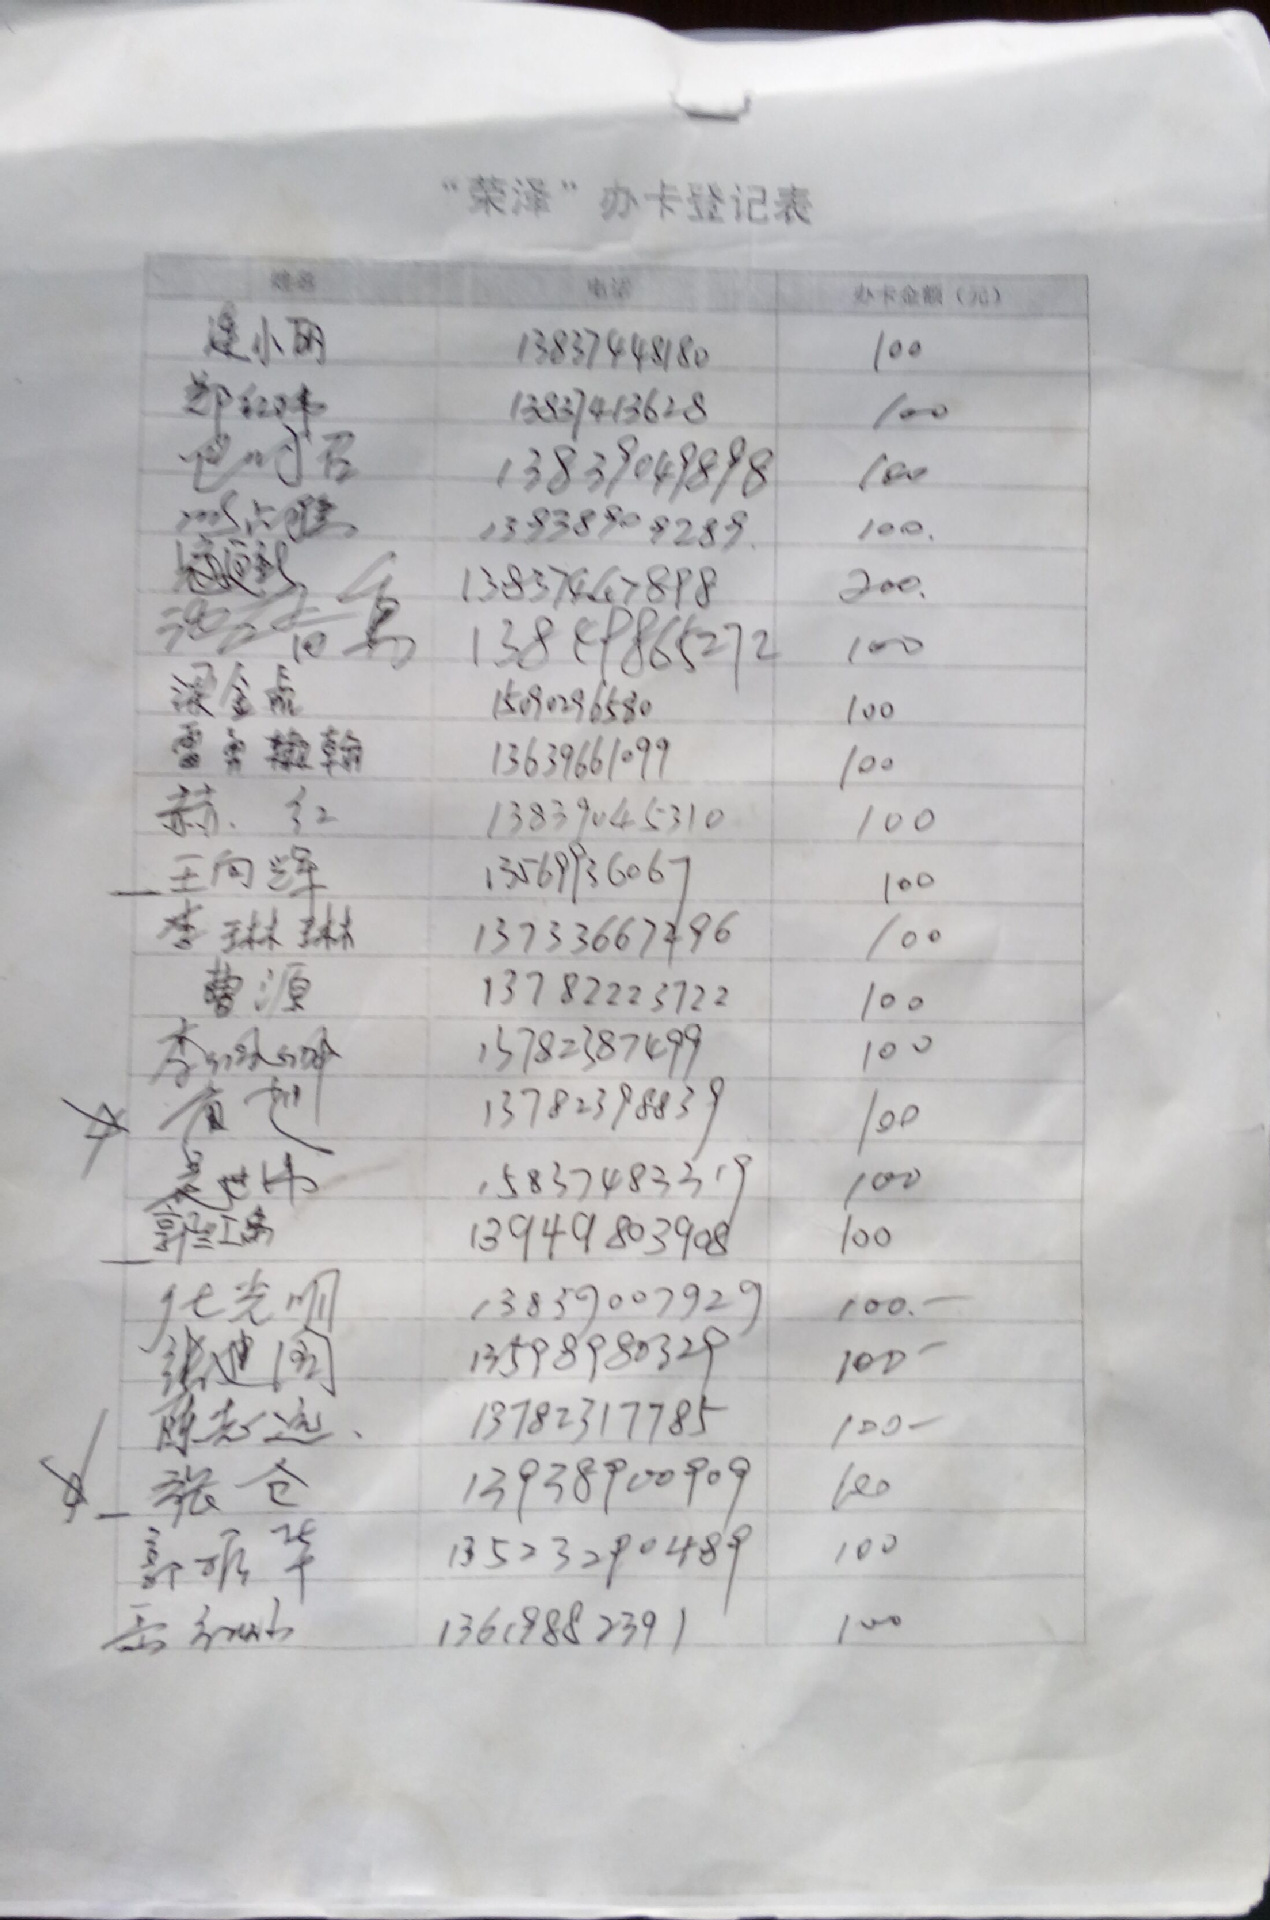 “荣泽”办卡登记表
姓名 电话 办卡金额（元）
逯小丽 13837448180 100
郑红伟 13837413628 100
13839049898 100
13938909289. 100.
13837467898 200.
13849865272 100
梁金虎 15090296580 100
雷勇 翰 13639661099 100
赫红 13839045310 100
王向辉 13569936067 100
李琳琳 13733667296 100
曹源 13782223722 100
李 13782387499 100
13782398839 100
15837483319 100
郭 13949803908 100
化光明 13839007929 100.—
张建阁 13598980329 100—
陈志远. 13782317785 100—
张仓 13938900909 100
郭 华 13523290489 100
13619882391 100